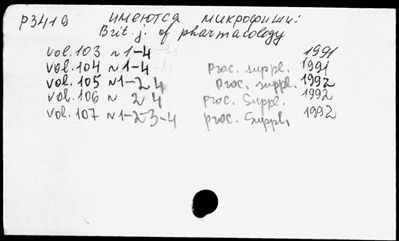 P3410 имеются микрофиши:
Brit. j. of pharmacology
vol. 103 N 1-4 1991
vol. 104 N 1-4 Proc. suppl. 1991
vol. 105 N 1-2 4 Proc. suppl. 1992
vol. 106 N 2 4 Proc. Suppl. 1992
vol. 107 N 1-2-3-4 Proc. Suppl. 1992